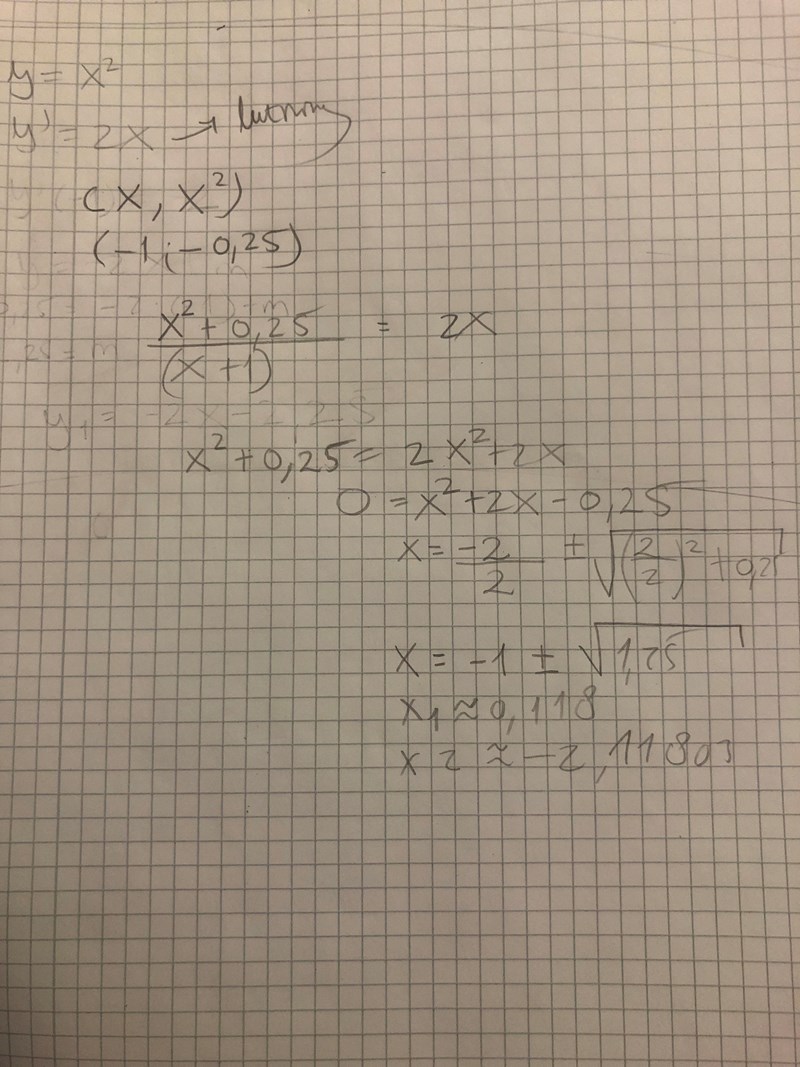 y = x²
y' = 2x → lutning
(x, x²)
(-1; -0,25)
(x² + 0,25)/(x + 1) = 2x
x² + 0,25 = 2x² + 2x
0 = x² + 2x - 0,25
x = -2/2 ± √((2/2)² + 0,2
x = -1 ± √1,25
x₁ ≈ 0,118
x2 ≈ -2,11803